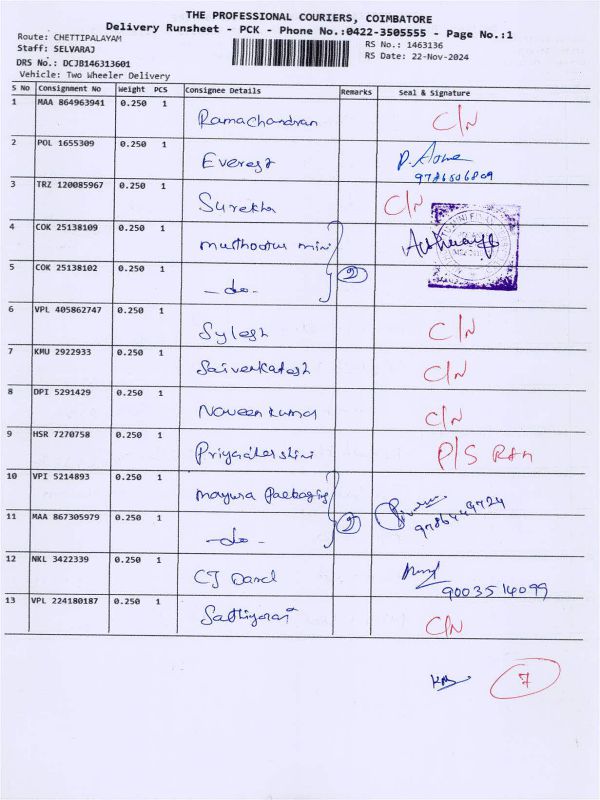 THE PROFESSIONAL COURIERS, COIMBATORE
Delivery Runsheet - PCK - Phone No.:0422-3505555 - Page No.:1
Route: CHETTIPALAYAM
RS No.: 1463136
Staff: SELVARAJ
RS Date: 22-Nov-2024
DRS No.: DCJB146313601
Vehicle: Two Wheeler Delivery
S No Consignment No Weight PCS Consignee Details Remarks Seal & Signature
1 MAA 864963941 0.250 1 Ramachandran C/N
2 POL 1655309 0.250 1 Everest
9786506809
3 TRZ 120085967 0.250 1 Surekha C/N
4 COK 25138109 0.250 1 muthoottu mini
5 COK 25138102 0.250 1 -do- 2
6 VPL 405862747 0.250 1 Sylesh C/N
7 KMU 2922933 0.250 1 Saivenkatesh C/N
8 DPI 5291429 0.250 1 Naveen kumar C/N
9 HSR 7270758 0.250 1 Priyadharshini P/S
10 VPI 5214893 0.250 1 mayura Packaging
11 MAA 867305979 0.250 1 -do- 2
12 NKL 3422339 0.250 1 CJ
9003514099
13 VPL 224180187 0.250 1 C/N
7